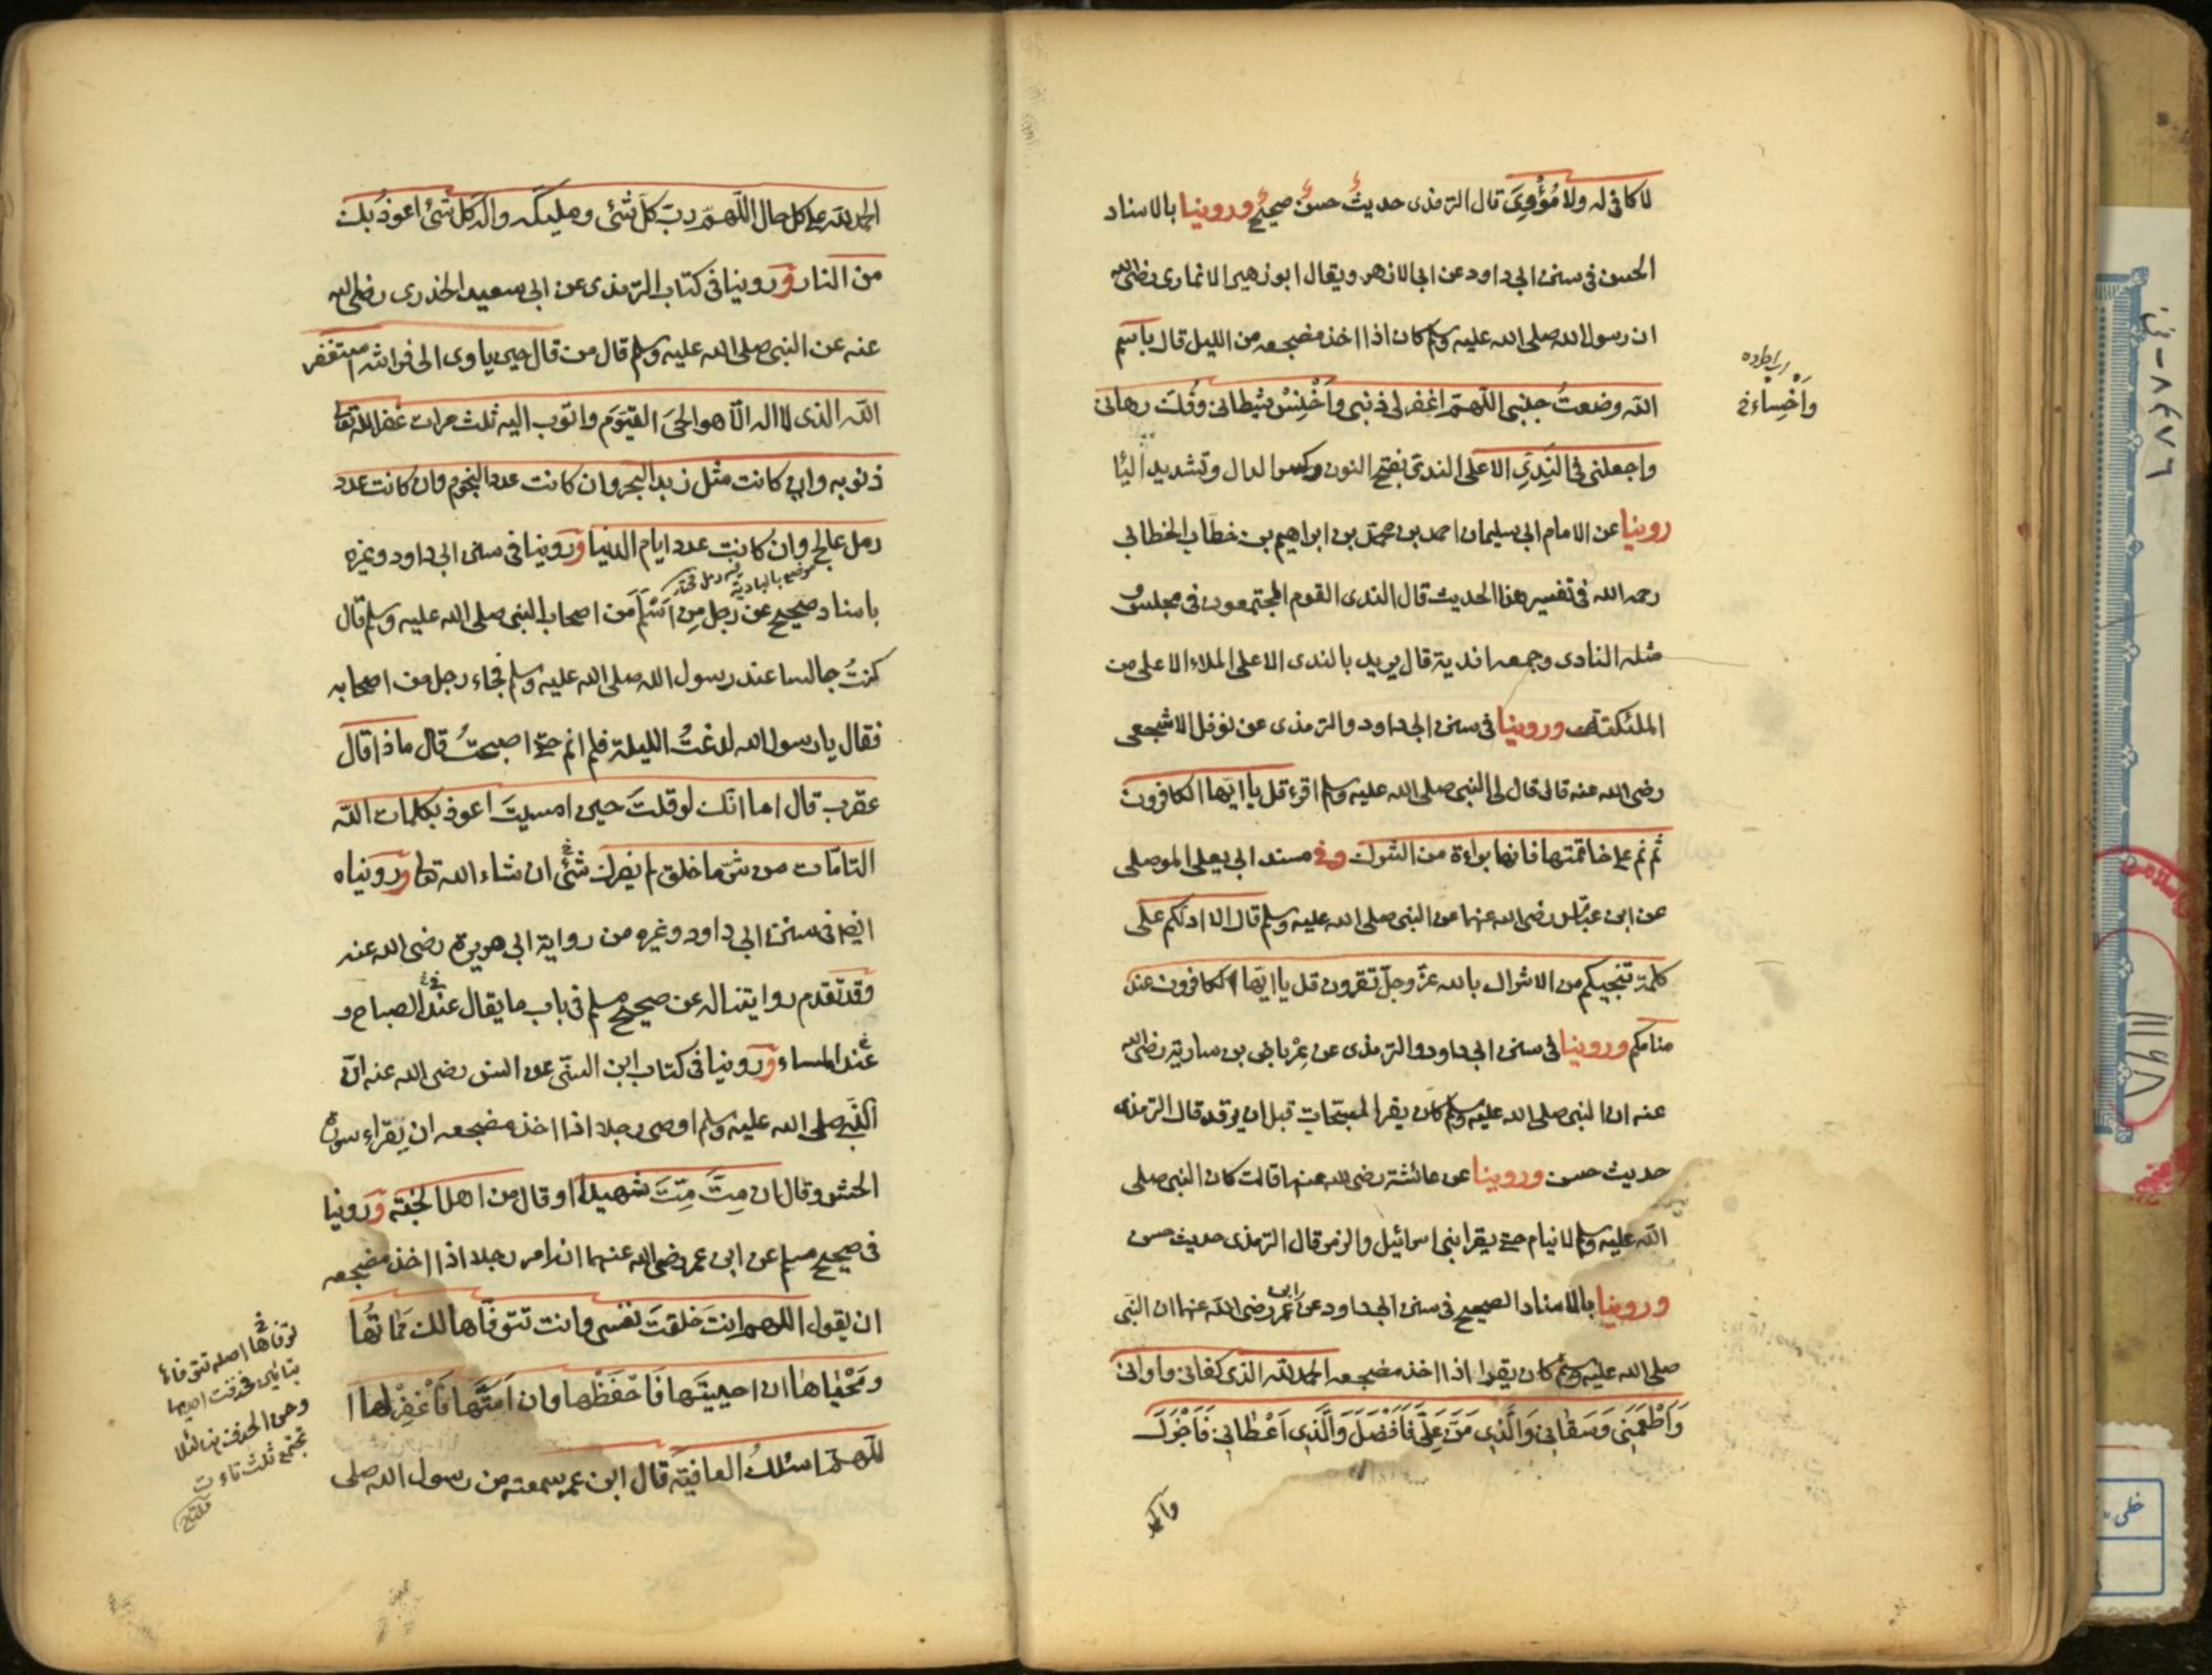 لا كافى له ولا مُؤْوِىَ قال الترمذى حديثٌ حسنٌ صحيحٌ وروينا بالاسناد
الحسن فى سنن ابى داود عن ابى الازهر ويقال ابو زهير الانمارى رضى الله
ان رسول الله صلى الله عليه وسلم كان اذا اخذ مضجعه من الليل قال باسم
الله وضعتُ جنبى اللّهمّ اغفر لى ذنبى وأَخْنِسْ شيطانى وفُكَّ رهانى
واجعلنى فى النَدِىِّ الاعلى الندىّ بفتح النون وكسر الدال وتشديد اليا
روينا عن الامام ابى سليمان احمد بن محمّد بن ابراهيم بن خطاب الخطابى
رحمه الله فى تفسير هذا الحديث قال الندى القوم المجتمعون فى مجلس و
مثله النادى وجمعه اندية قال يريد بالندى الاعلى الملاء الاعلى من
الملئكة وروينا فى سنن ابى داود والترمذى عن نوفل الاشجعى
رضى الله عنه قال قال لى النبى صلى الله عليه وسلم اقرء قل يا ايّها الكافرون
ثم نم على خاتمتها فانها براءة من الشرك وفى مسند ابى يعلى الموصلى
عن ابن عبّاس رضى الله عنهما عن النبى صلى الله عليه وسلم قال الا ادلكم على
كلمة تنجيكم من الاشراك بالله عزّ وجلّ تقرون قل يا ايّها الكافرون عند
منامكم وروينا فى سنن ابى داود والترمذى عن عِرْباض بن سارية رضى الله
عنه ان النبى صلى الله عليه وسلم كان يقرا المسبّحات قبل ان يرقد قال الترمذى
حديث حسن وروينا عن عائشة رضى الله عنها قالت كان النبى صلى
الله عليه وسلم لا ينام حتى يقرا بنى اسرائيل والزمر قال الترمذى حديث حسن
وروينا بالاسناد الصحيح فى سنن ابى داود عن ابن عمر رضى الله عنهما ان النبى
صلى الله عليه وسلم كان يقول اذا اخذ مضجعه الحمد لله الذى كفانى واوانى
وَاَطْعَمَنِى وَسَقَانِى وَالَّذِى مَنَّ عَلَىَّ فَاَفْضَلَ وَالَّذِى اَعْطَانِى فَاَجْزَلَ
واَخْسِاءْ خ
الحمد لله على كل حال اللّهمّ ربّ كلّ شئ ومليكه واله كل شئ اعوذ بك
من النار وروينا فى كتاب الترمذى عن ابى سعيد الخدرى رضى الله
عنه عن النبى صلى الله عليه وسلم قال من قال حين ياوى الى فراشه استغفر
الله الذى لا اله الّا هو الحىّ القيّوم واتوب اليه ثلث مرات غفر الله تعا
ذنوبه وان كانت مثل زبد البحر وان كانت عدد النجوم وان كانت عدد
رمل عالج وان كانت عدد ايام الدنيا وروينا فى سنن ابى داود وغيره
باسناد صحيح عن رجل من اَسْلَمَ من اصحاب النبى صلى الله عليه وسلم قال
كنتُ جالسا عند رسول الله صلى الله عليه وسلم فجاء رجل من اصحابه
فقال يا رسول الله لدغتُ الليلة فلم انم حتى اصبحتُ قال ماذا قال
عقرب قال اما انّك لو قلتَ حين امسيتَ اعوذ بكلمات الله
التامّات من شرّ ما خلق لم يضرك شئٌ ان شاء الله تعا وروينا
ايضا فى سنن ابى داود وغيره من رواية ابى هريرة رضى الله عنه
وقد تقدم روايتنا له عن صحيح مسلم فى باب ما يقال عند الصباح و
عند المساء وروينا فى كتاب ابن السنّى عن انس رضى الله عنه انّ
النّبى صلى الله عليه وسلم اوصى رجلا اذا اخذ مضجعه ان يقراء سورة
الحشر وقال ان مِتَّ مِتَّ شهيدا او قال من اهل الجنّة وروينا
فى صحيح مسلم عن ابن عمر رضى الله عنهما انه امر رجلا اذا اخذ مضجعه
ان يقول اللهم انتَ خلقتَ نفسى وانت تتوفّاها لك مَمَاتُها
ومَحْيَاها ان احييتَها فَاحْفَظْها وان اَمَتَّها فَاغْفِرْ لها ا
للّهمّ اسئلكُ العافية قال ابن عمر سمعته من رسول الله صلى
موضع بالبادية
توفاها خ اصله تتوفاء
بتائين فحذفت احديهما
تجتمع ثلث تاءت